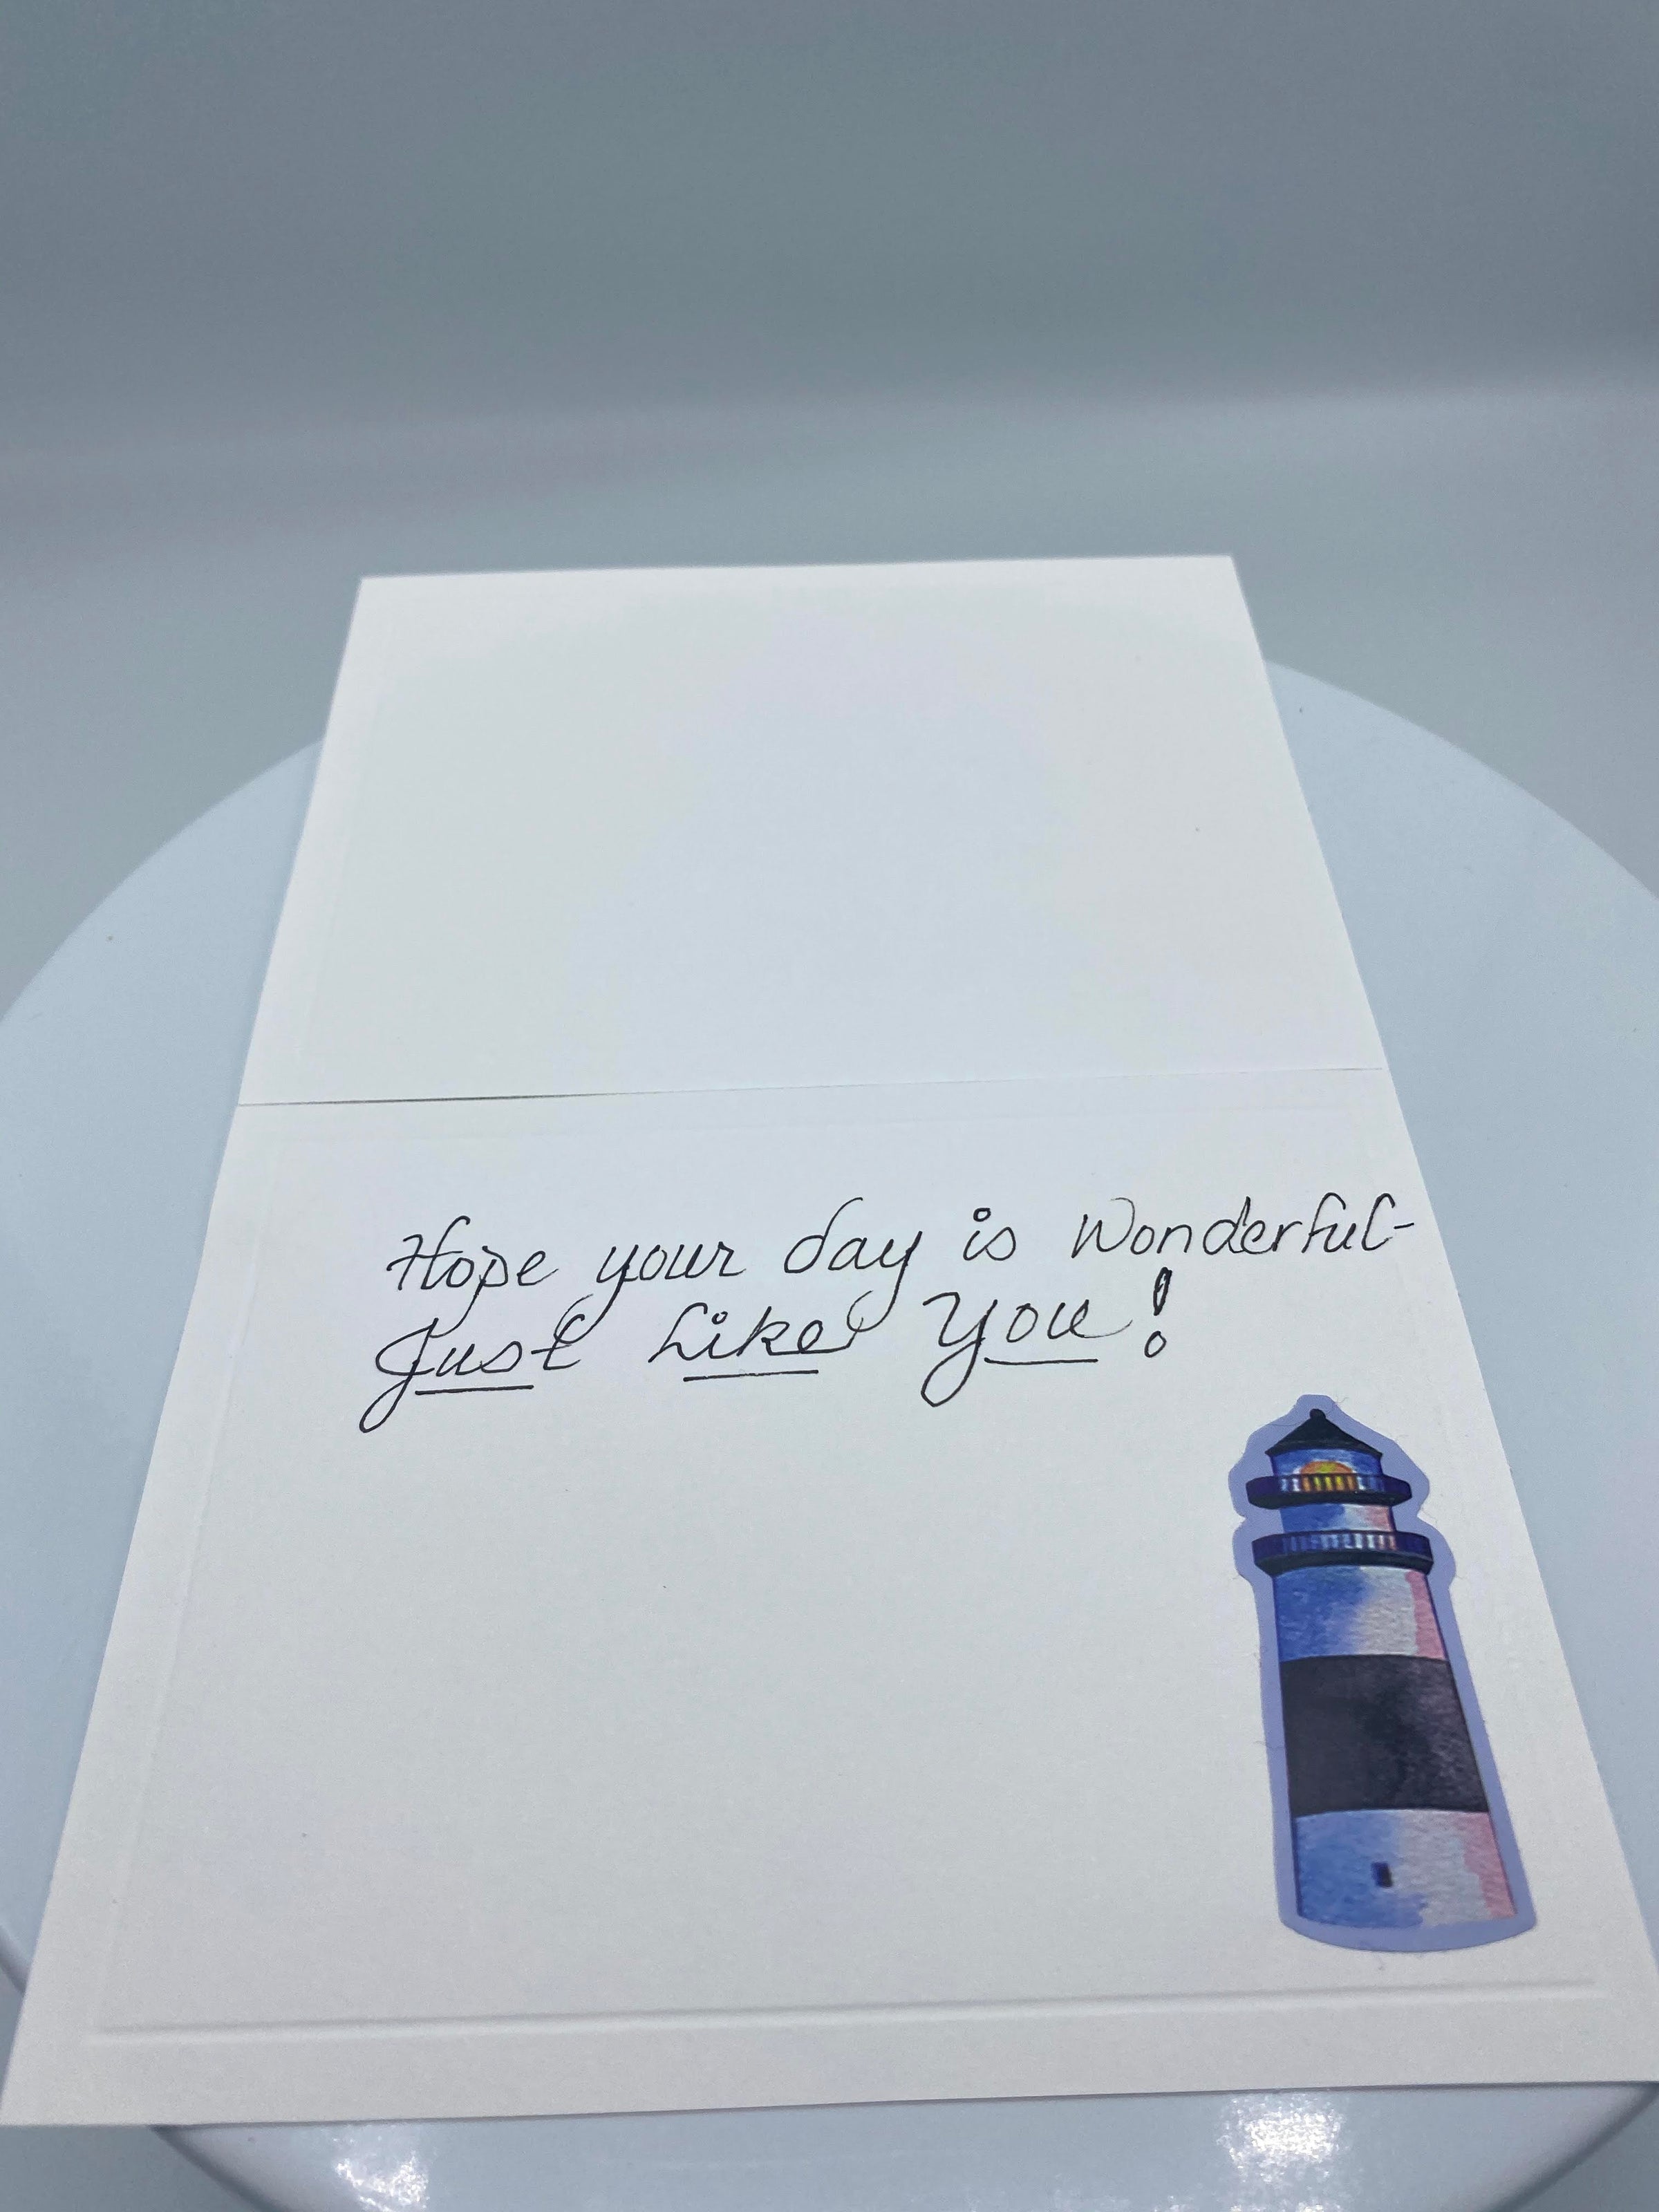 Hope your day is Wonderful-
Just Like You!